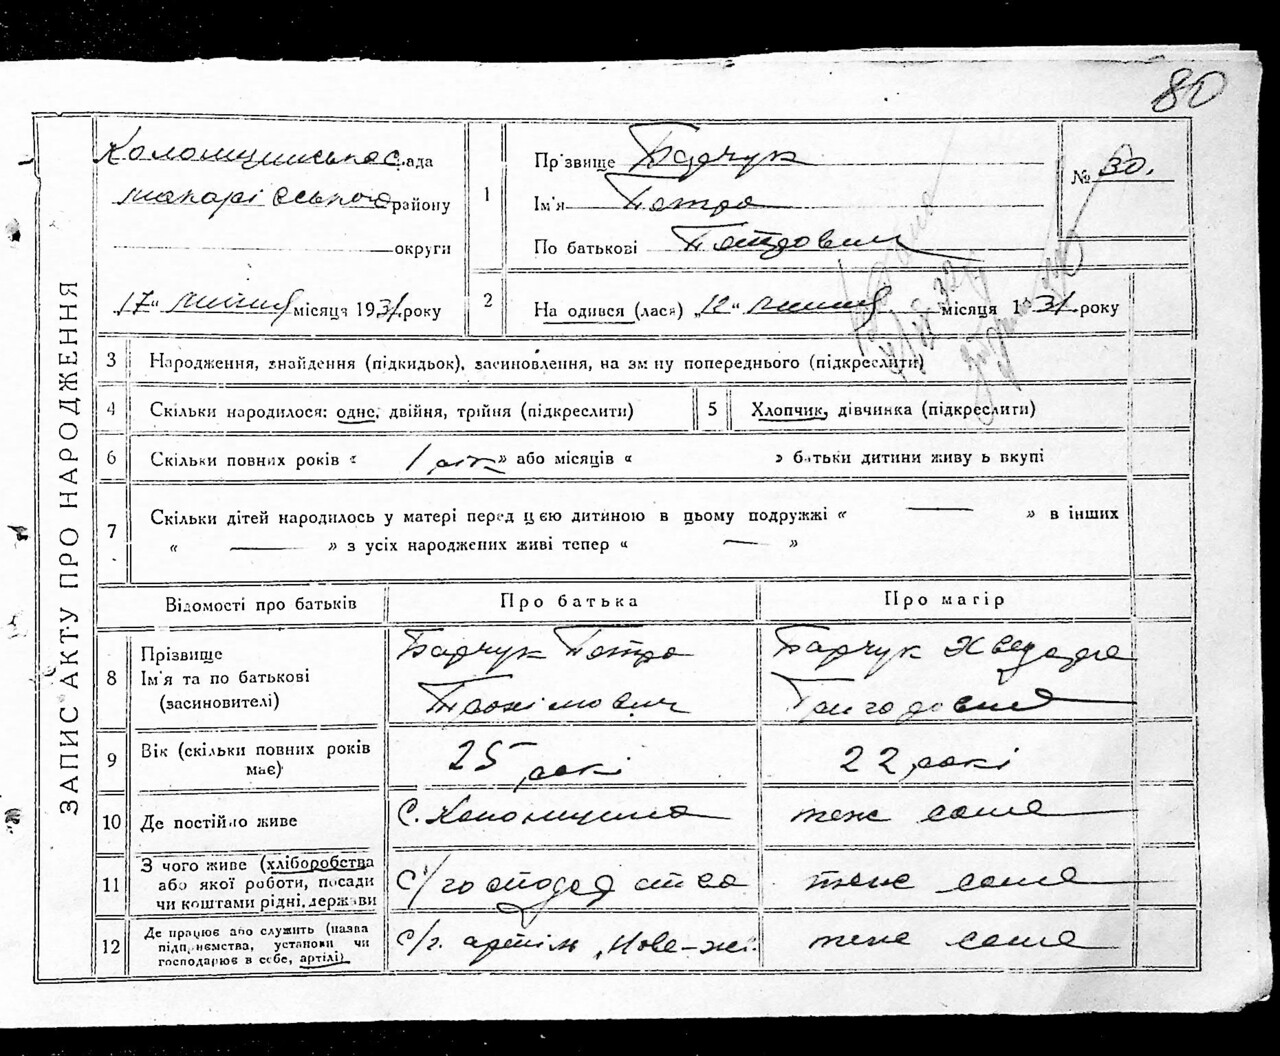 80
ЗАПИС АКТУ ПРО НАРОДЖЕННЯ
Сільрада
Макарівського району
округи
17" липня місяця 1931 року
1
Прізвище Барчук
Ім'я Петро
По батькові Петрович
№ 30.
2
Народився (лася) „12" липня місяця 1931 року
3 Народження, знайдення (підкидьок), засиновлення, на зміну попереднього (підкреслити)
4 Скільки народилося: одне, двійня, трійня (підкреслити)
5 Хлопчик, дівчинка (підкреслити)
6 Скільки повних років « 1 рік » або місяців « » батьки дитини живуть вкупі
7 Скільки дітей народилось у матері перед цією дитиною в цьому подружжі « — » в інших
« — » з усіх народжених живі тепер « — »
Відомості про батьків Про батька Про матір
8 Прізвище
Ім'я та по батькові
(засиновителі)
Барчук Петро
Барчук
Григоровна
9 Вік (скільки повних років
має)
25 рокі
22 рокі
10 Де постійно живе
с.
теж саме
11 З чого живе (хліборобства
або якої роботи, посади
чи коштами рідні, держави
с/господарство
теж саме
12 Де працює або служить (назва
підприємства, установи чи
господарює в себе, артілі)
с/г. артіль „Нове-жі.
теж саме